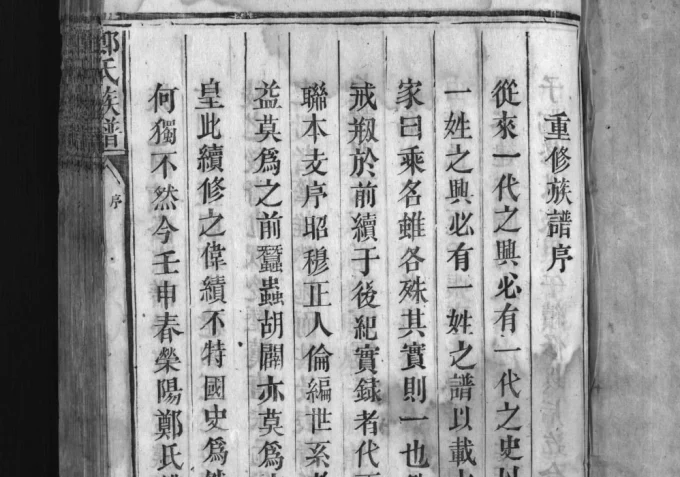 重修族譜序
從來一代之興必有一代之史
一姓之興必有一姓之譜以載
家曰乘名雖各殊其實則一也
戒剏於前續于後紀實録者代
聯本支序昭穆正人倫編世系
益莫爲之前蠶蟲胡闢亦莫爲
皇此續修之偉績不特國史爲
何獨不然今壬申春榮陽鄭氏
鄭氏族譜
序